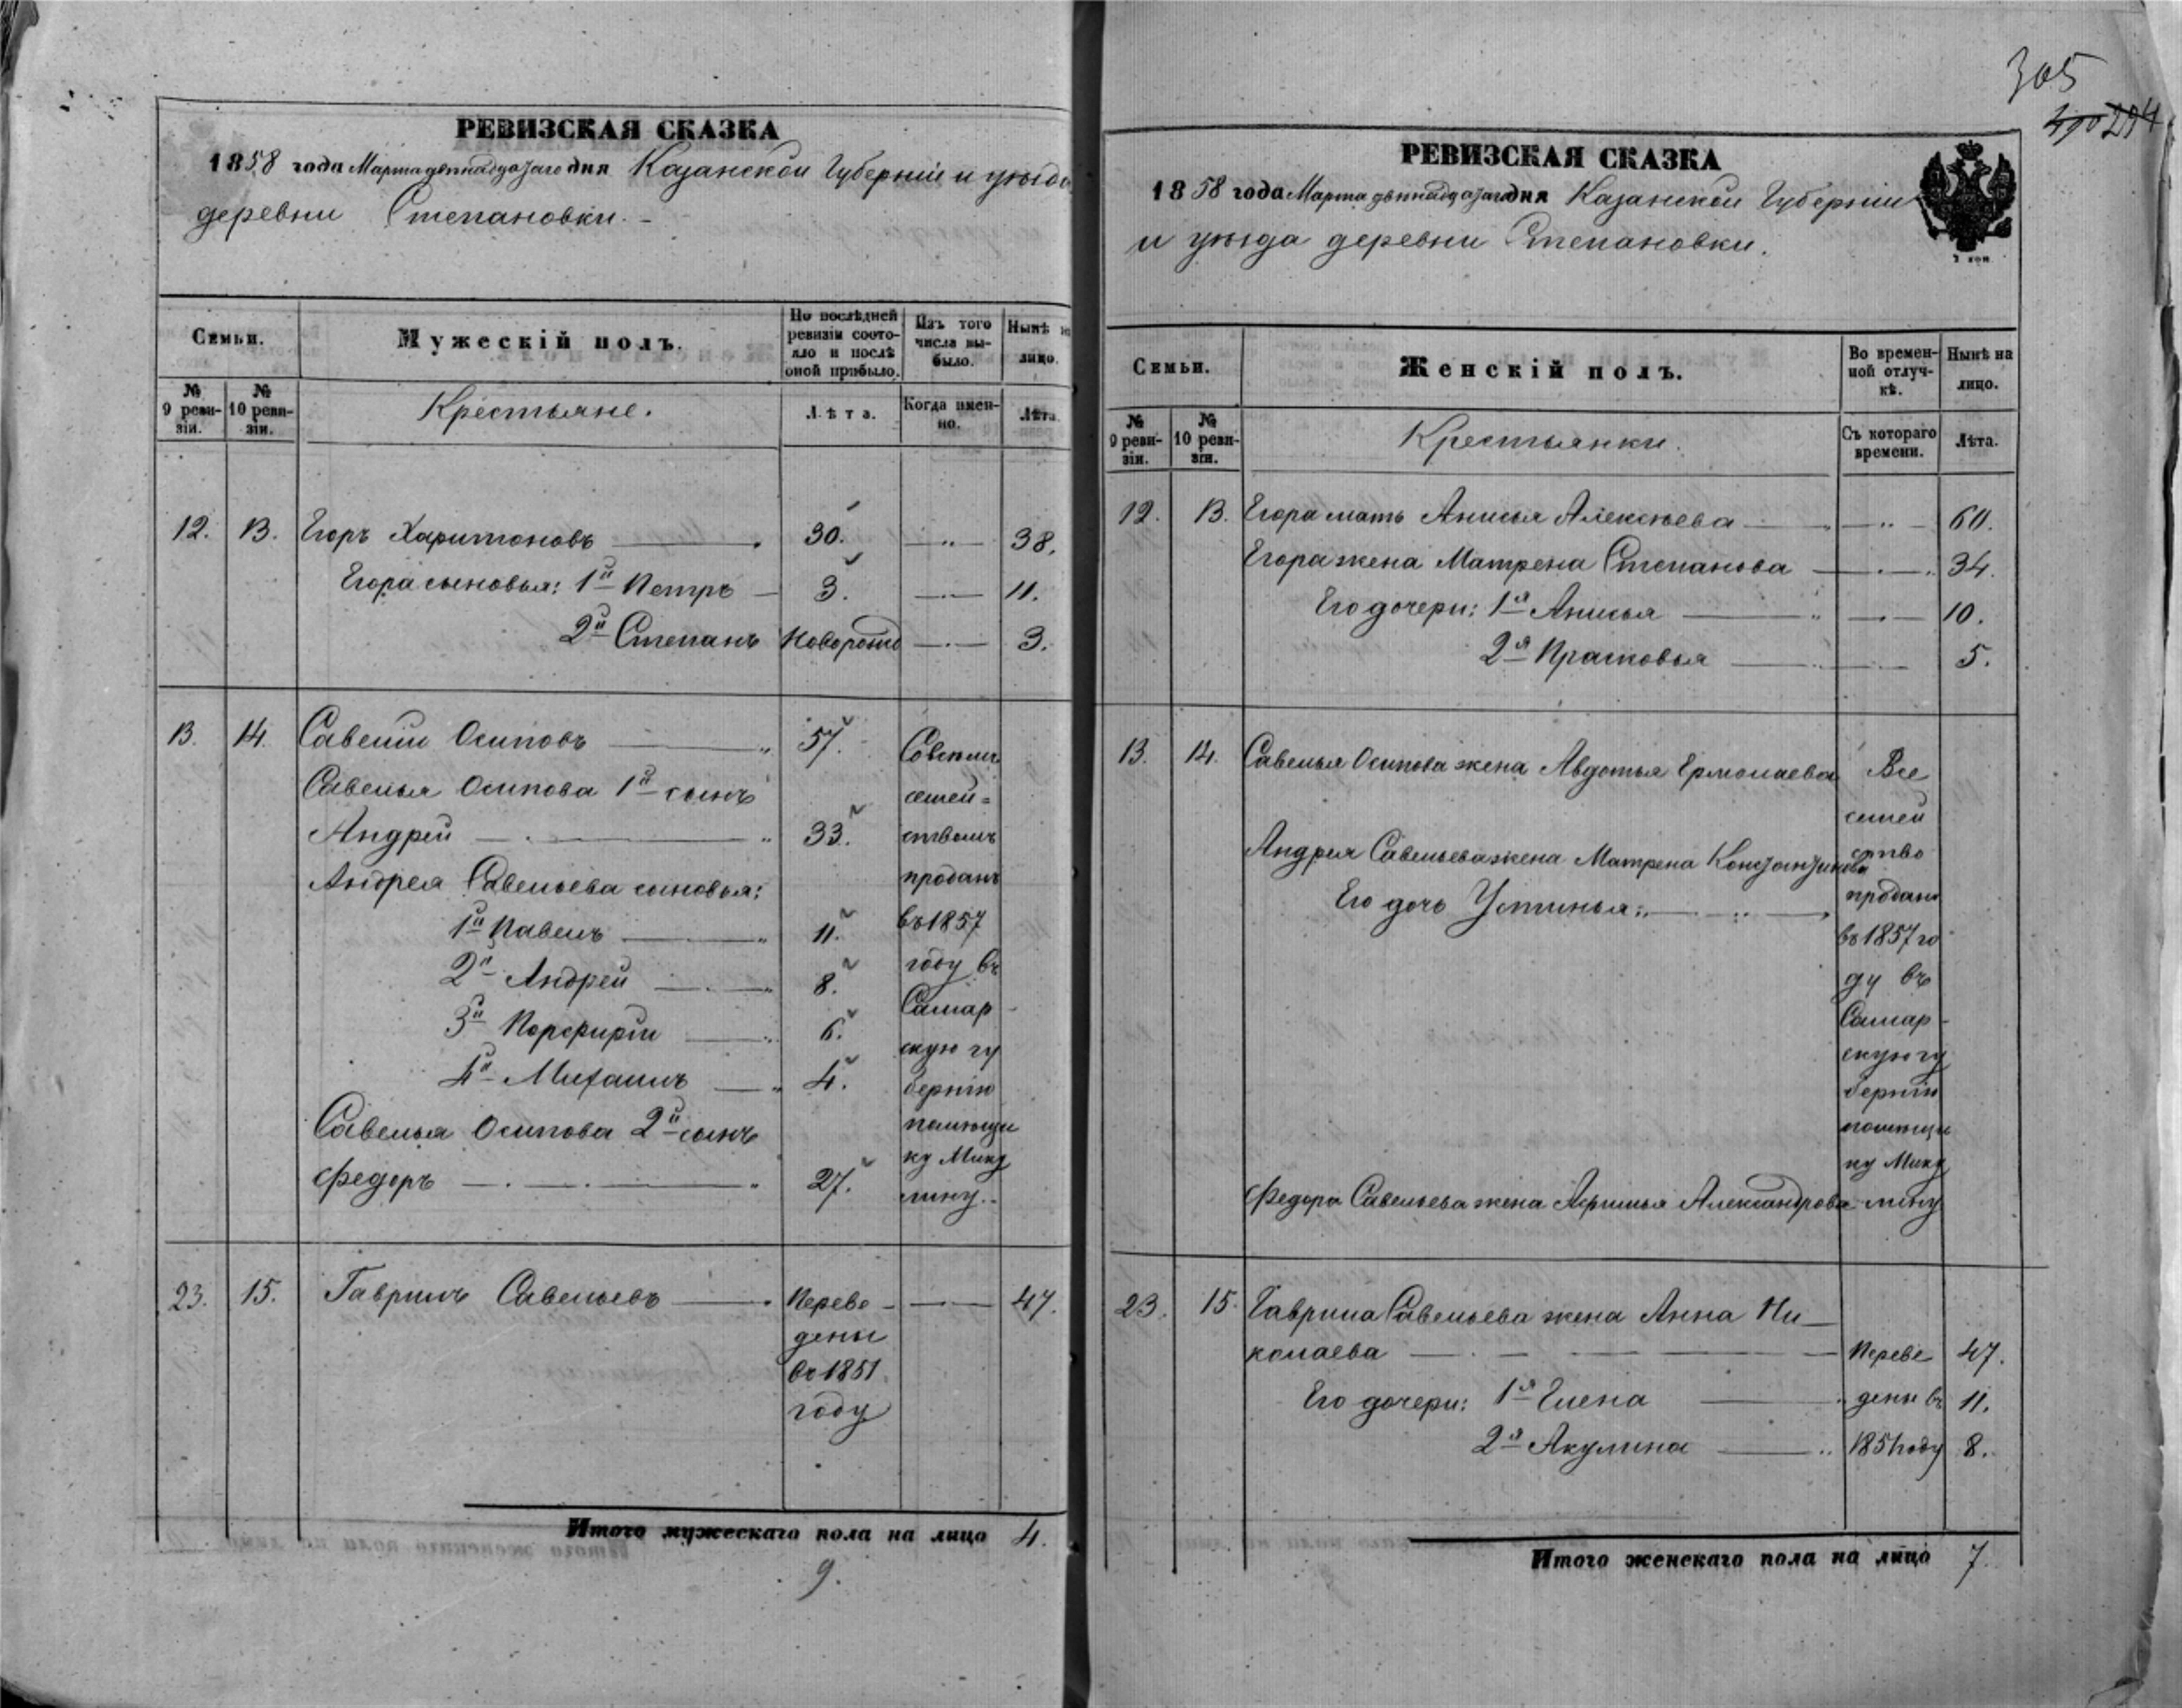 305
294
РЕВИЗСКАЯ СКАЗКА
1858 года Марта двенадцатаго дня Казанской Губерніи и уѣзда
деревни Степановки.
Семьи.
Мужескій полъ.
По послѣдней ревизіи состояло и послѣ оной прибыло.
Изъ того числа выбыло.
Нынѣ на лицо.
№ 9 ревизіи.
№ 10 ревизіи.
Крестьяне.
Лѣта.
Когда именно.
Лѣта.
12. 13. Егоръ Харитоновъ 30. 38.
Егора сыновья: 1й Петръ 3. 11.
2й Степанъ Новорожд 3.
13. 14. Савелій Осиповъ 57. Совсѣмъ
Савелья Осипова 1й сынъ семей=
Андрей 33. ствомъ
Андрея Савельева сыновья: проданъ
1й Павелъ 11. въ 1857
2й Андрей 8. году въ
3й Порфирій 6. Самар-
скую гу
4й Михаилъ 4. бернію
Савелья Осипова 2й сынъ помѣщи
ку Мику
Федоръ 27. лину.
23. 15. Гаврилъ Савельевъ Переве- 47.
дены
въ 1851
году
Итого мужескаго пола на лицо 4.
9.
РЕВИЗСКАЯ СКАЗКА
1858 года Марта двенадцатаго дня Казанской Губерніи
и уѣзда деревни Степановки.
Семьи.
Женскій полъ.
Во временной отлучкѣ.
Нынѣ на лицо.
№ 9 ревизіи.
№ 10 ревизіи.
Крестьянки.
Съ котораго времени.
Лѣта.
12. 13. Егора мать Анисья Алексѣева 60.
Егора жена Матрена Степанова 34.
Его дочери: 1я Анисья 10.
2я Прасковья 5.
13. 14. Савелья Осипова жена Авдотья Ермолаева Все
семей
Андрея Савельева жена Матрена Константинова ство
Его дочь Устинья: продано
въ 1857 го
ду въ
Самар-
скую гу
бернію
помѣщи
ку Мику
Федора Савельева жена Афимья Александрова лину
23. 15. Гаврила Савельева жена Анна Ни-
колаева Переве 47.
Его дочери: 1я Елена дены въ 11.
2я Акулина 1851 году 8.
Итого женскаго пола на лицо 7.